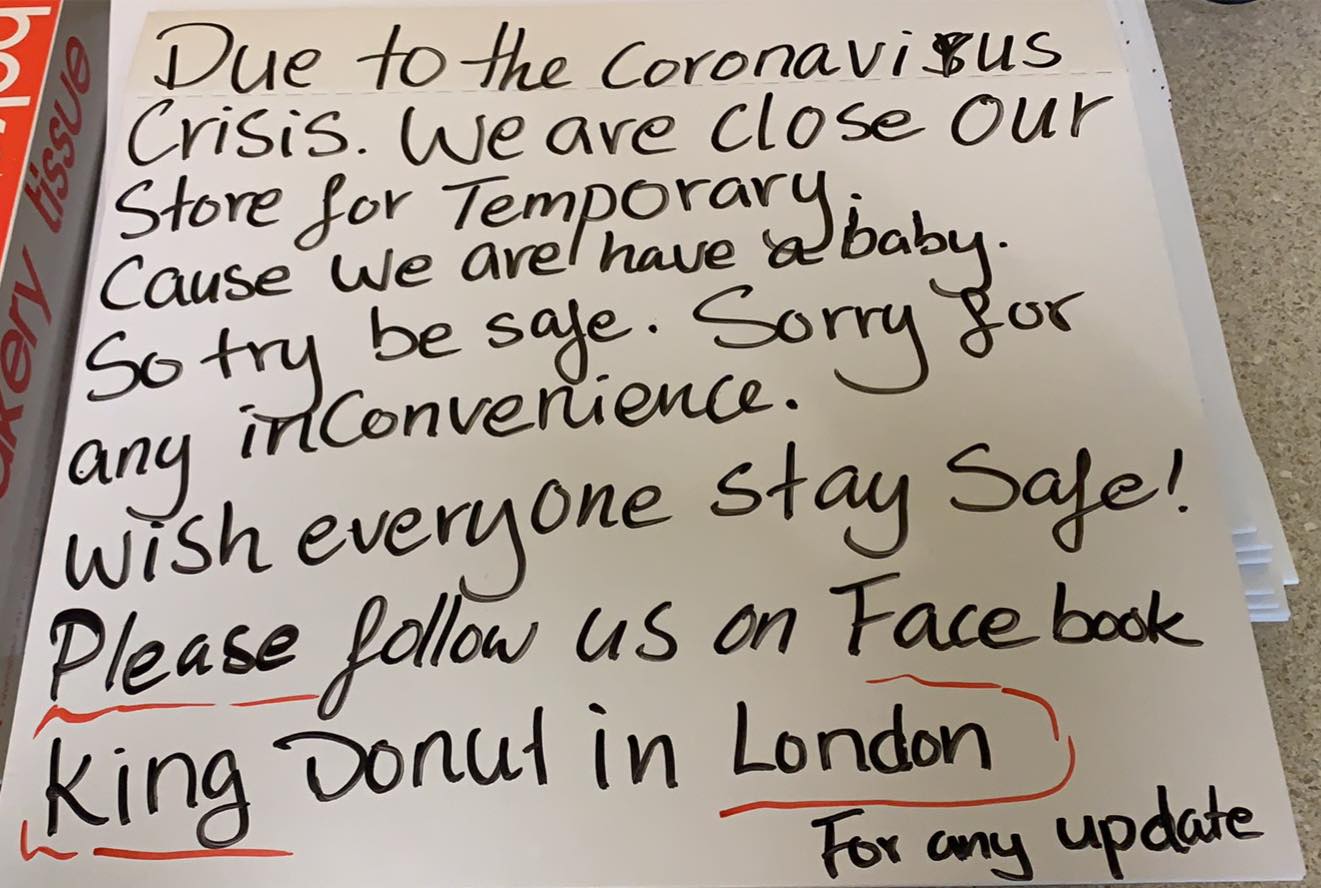 Due to the Coronavirus
Crisis. We are close our
Store for Temporary.
Cause we are have a baby.
So try be safe. Sorry for
any inconvenience.
wish everyone stay Safe!
Please follow us on Facebook
King Donut in London
For any update
tissue